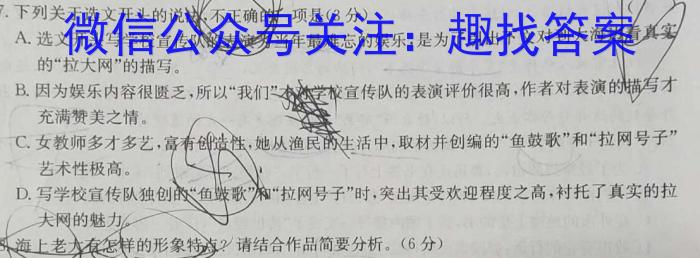 7. 下列关于选文开头的说法,不正确的一项是(3分)
微信公众号关注:趣找答案
A. 选文 写学校宣传队的表演为当年最难忘的娱乐,是为 对 大 看真实
的“拉大网”的描写。
B. 因为娱乐内容很匮乏,所以“我们”才对学校宣传队的表演评价很高,作者对表演的描写才
充满赞美之情。
C. 女教师多才多艺,富有创造性,她从渔民的生活中,取材并创编的“鱼鼓歌”和“拉网号子”
艺术性极高。
D. 写学校宣传队独创的“鱼鼓歌”和“拉网号子”时,突出其受欢迎程度之高,衬托了真实的拉
大网的魅力。
海上老大有怎样的形象特点?请结合作品简要分析。(6分)